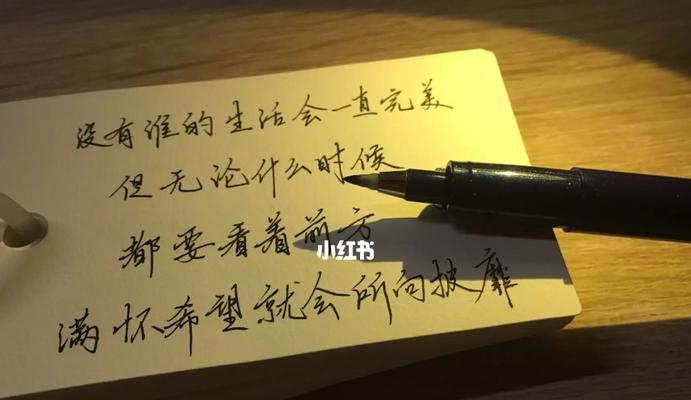 没有谁的生活会一直完美
但无论什么时候
都要看着前方
满怀希望就会所向披靡
小红书